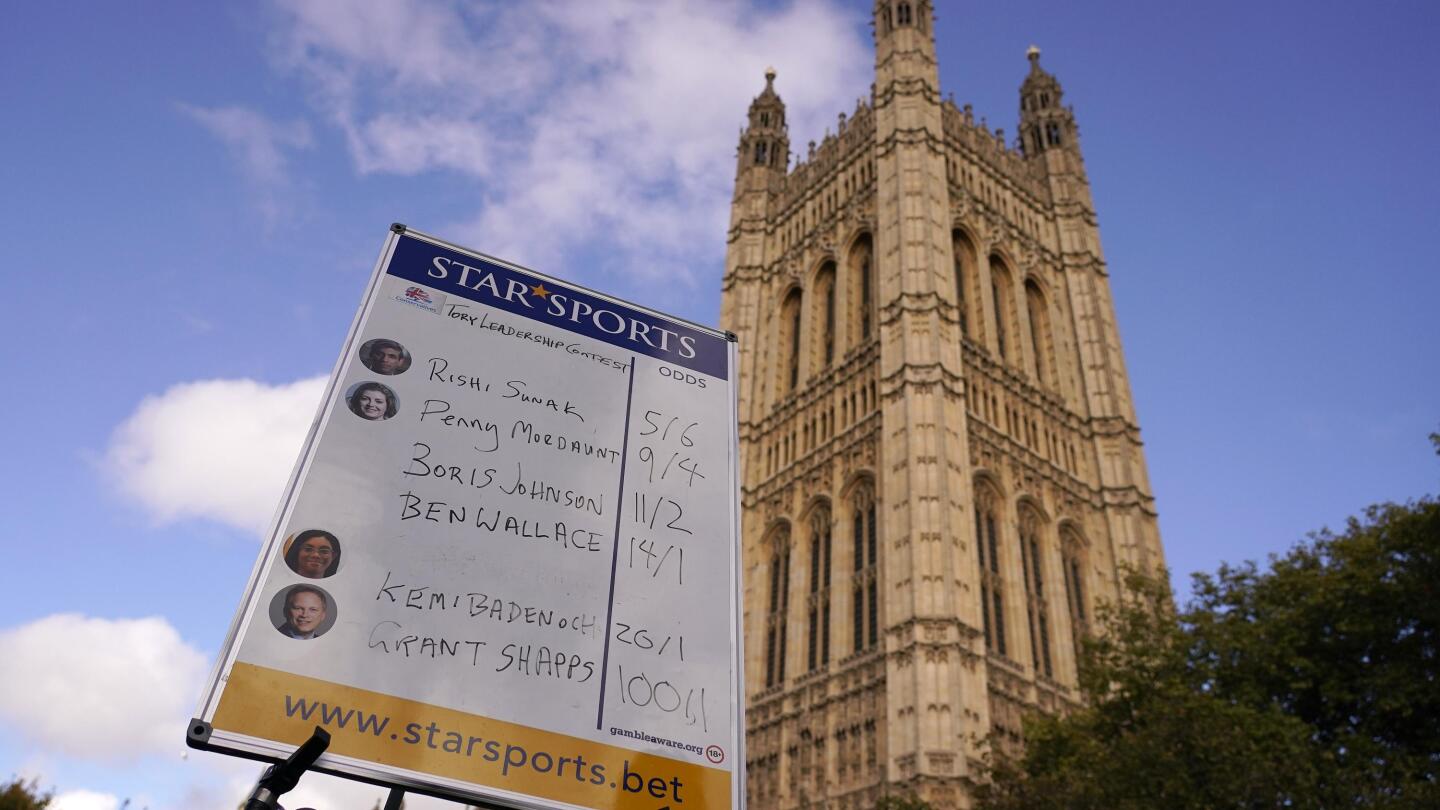 STAR★SPORTS
Conservatives
TORY LEADERSHIP CONTEST ODDS
RISHI SUNAK 5/6
Penny MORDAUNT 9/4
BORIS JOHNSON 11/2
BEN WALLACE 14/1
KEMI BADENOCH 20/1
GRANT SHAPPS 100/1
gambleaware.org 18+
www.starsports.bet